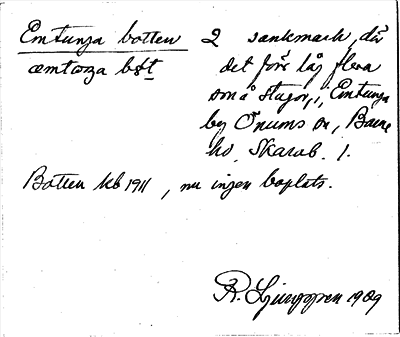 Emtunga botten 2 sankmark, där
æmtoŋa bǫt det förr låg flera
små stugor, i Emtunga
by Önums sn, Barne
hd. Skarab. l.
Botten kb 1911, nu ingen boplats.
R. Ljunggren 1909